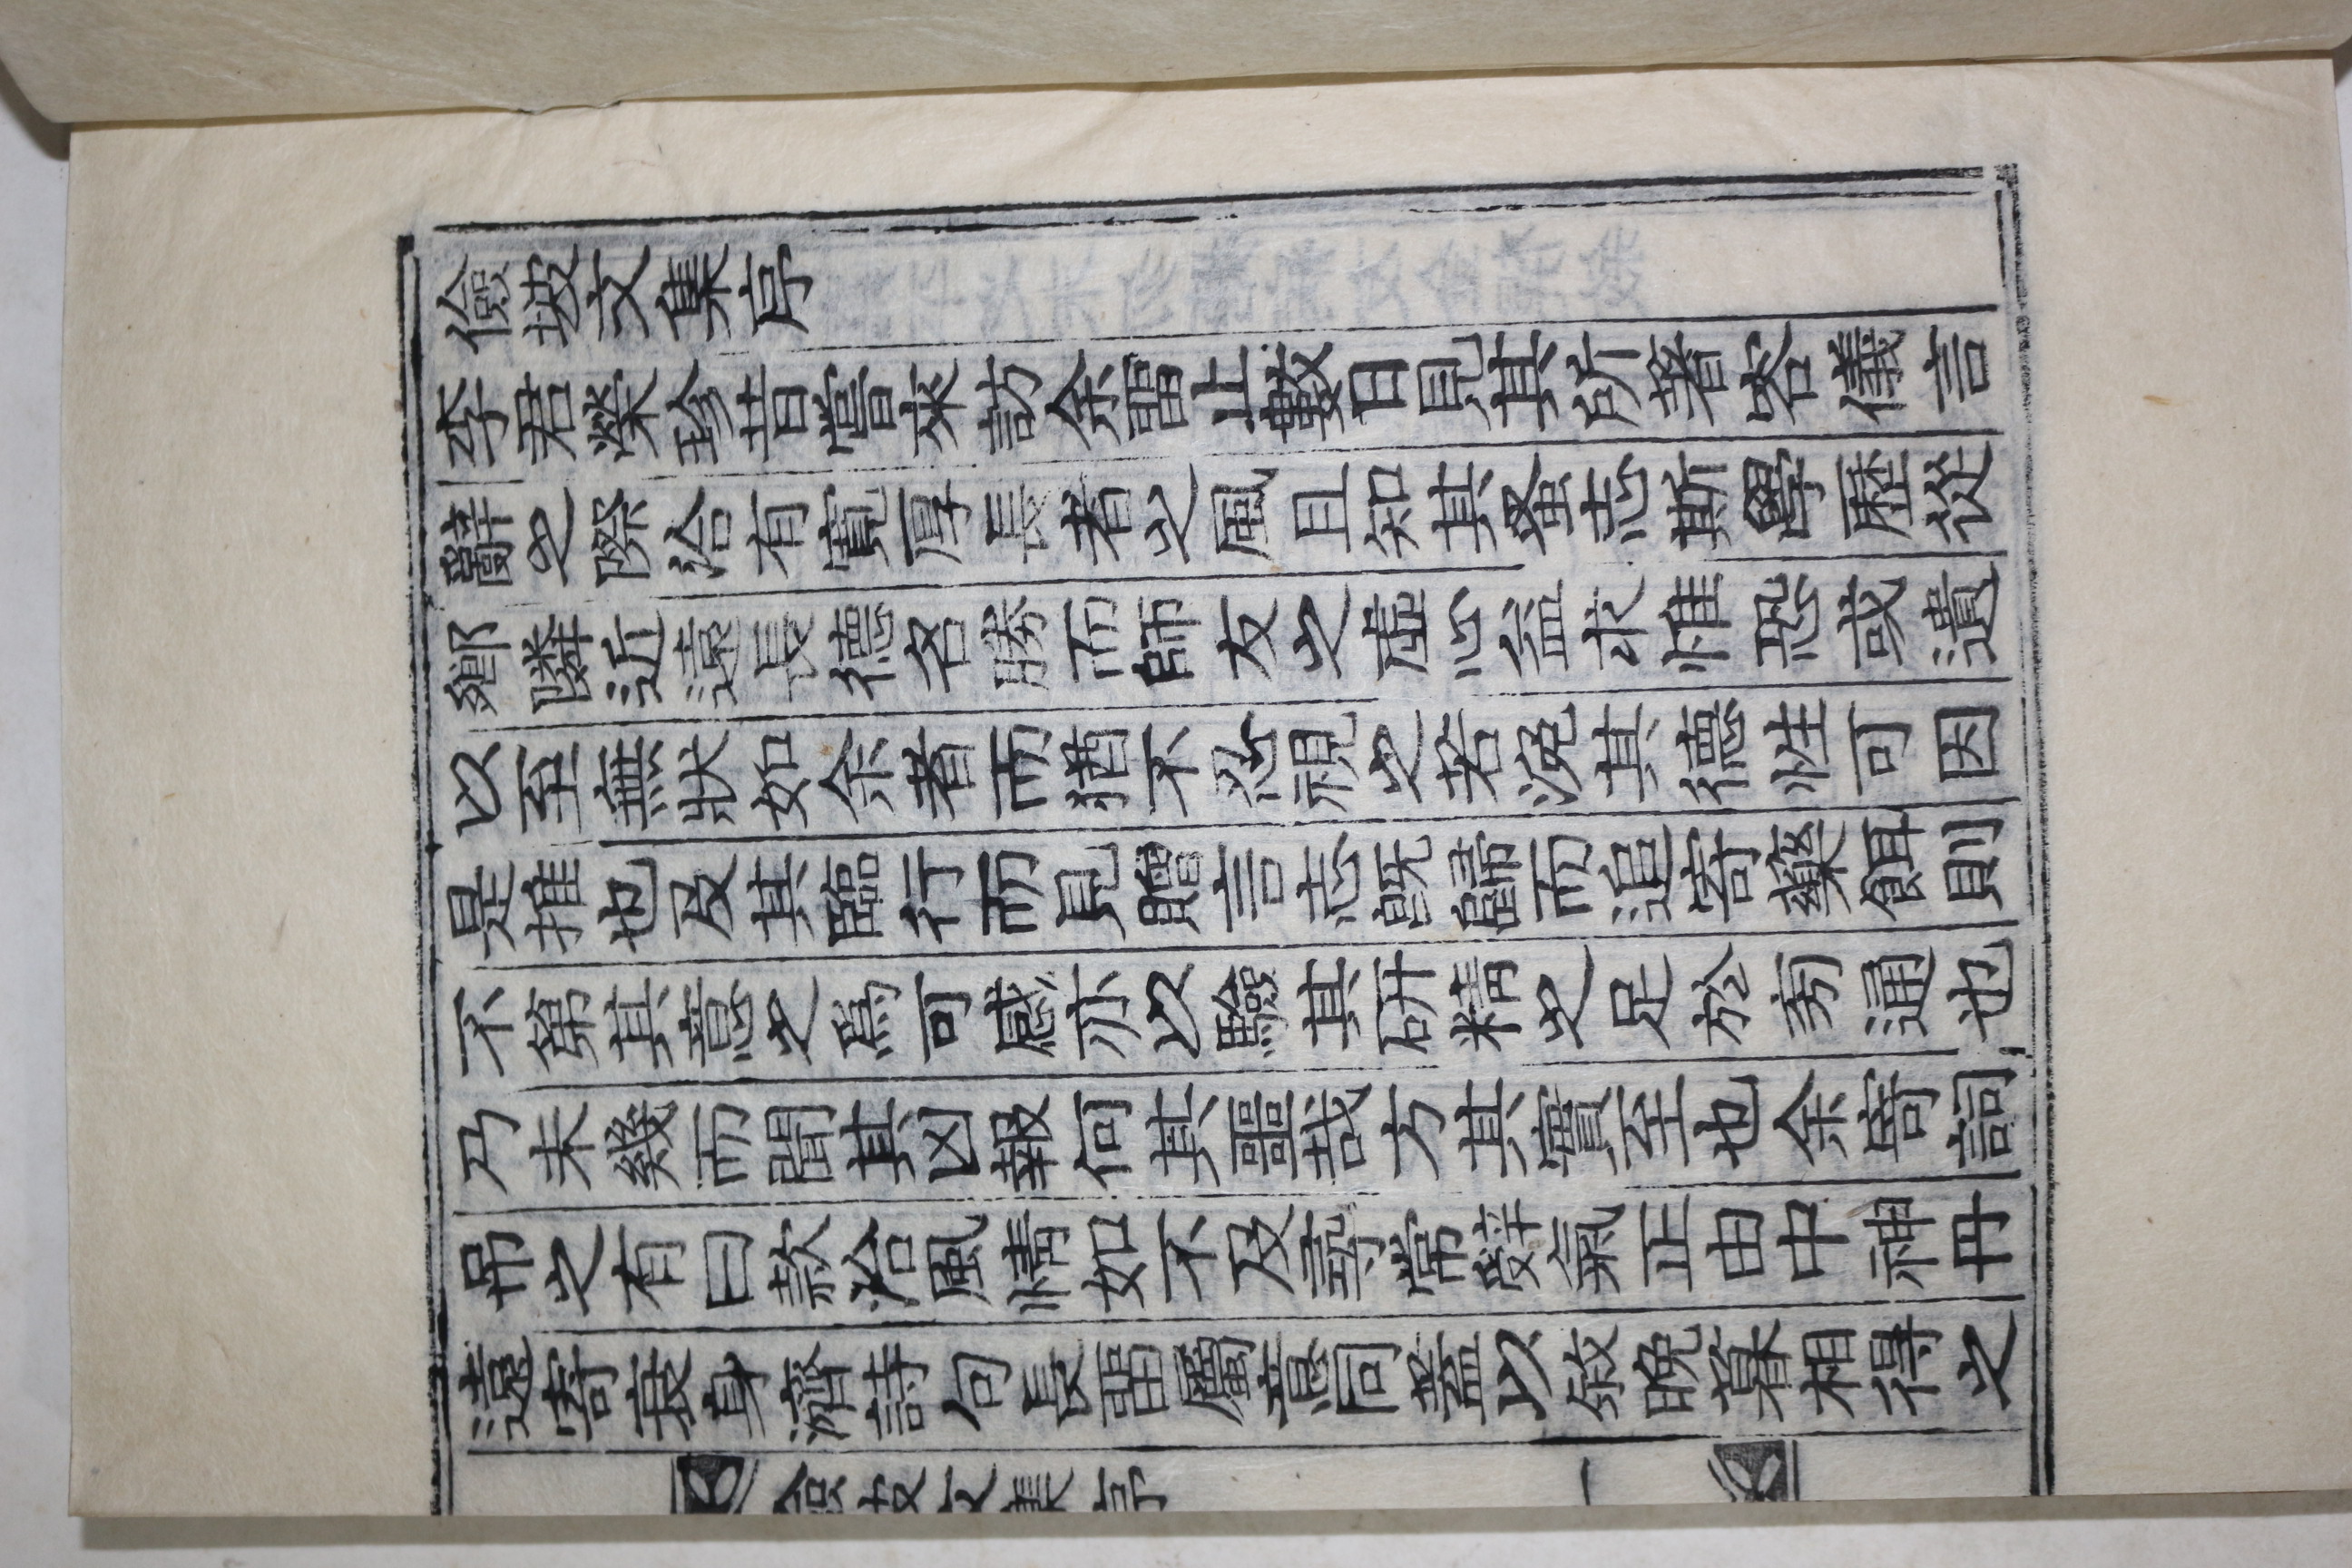 儉坡文集序
李君榮珍昔嘗來訪余畱止數日見其所著容儀言
辭之際洽有寬厚長者之風且知其蚤志斯學歷從
鄉隣近遠長德名勝而師友之虛心益求惟恐或遺
以至無狀如余者而猶不忍視之若浼其德性可因
是推也及其臨行而見贈言志旣歸而追寄藥餌則
不第其意之爲可感亦以驗其硏精之足於旁通也
乃未幾而聞其凶報何其噩哉方其實至也余寄詞
吊之有曰款洽風情如不及尋常辭氣正由中神丹
遠寄衰身濟詩句長畱屬意同蓋以敘晩暮相得之
儉坡文集序
一